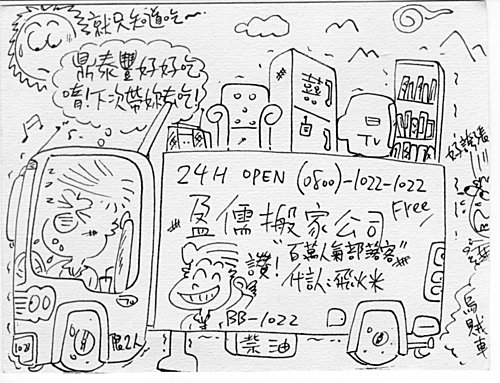 就只知道吃~
鼎泰豐好好吃
唷!下次帶妳去吃!
囍
TV
24H OPEN (0800)-1022-1022
Free
盈儒搬家公司
讚!
"百萬人氣部落客"
代言人:飛火米
BB-1022
1021
限2人
柴油
烏賊車